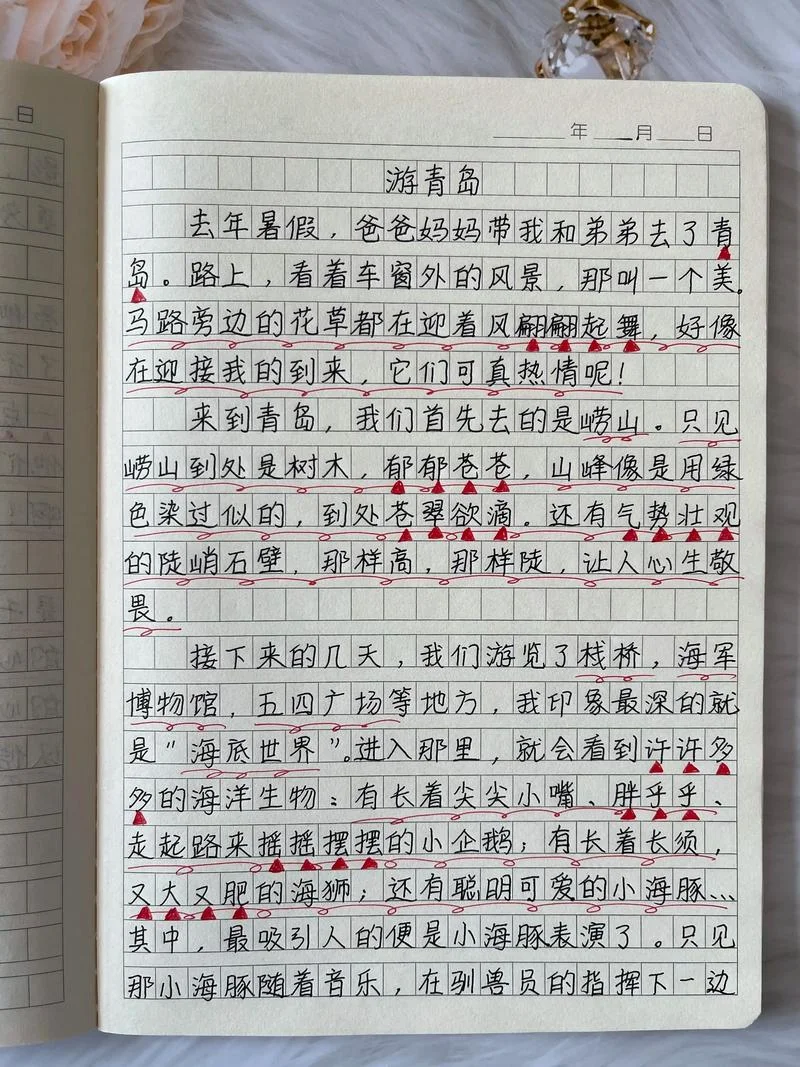 日
年 月 日
游青岛
去年暑假，爸爸妈妈带我和弟弟去了青
岛。路上，看着车窗外的风景，那叫一个美。
马路旁边的花草都在迎着风翩翩起舞，好像
在迎接我的到来，它们可真热情呢！
来到青岛，我们首先去的是崂山。只见
崂山到处是树木，郁郁苍苍，山峰像是用绿
色染过似的，到处苍翠欲滴。还有气势壮观
的陡峭石壁，那样高，那样陡，让人心生敬
畏。
接下来的几天，我们游览了栈桥，海军
博物馆，五四广场等地方，我印象最深的就
是“海底世界”。进入那里，就会看到许许多
多的海洋生物：有长着尖尖小嘴、胖乎乎、
走起路来摇摇摆摆的小企鹅；有长着长须，
又大又肥的海狮；还有聪明可爱的小海豚…
其中，最吸引人的便是小海豚表演了。只见
那小海豚随着音乐，在驯兽员的指挥下一边